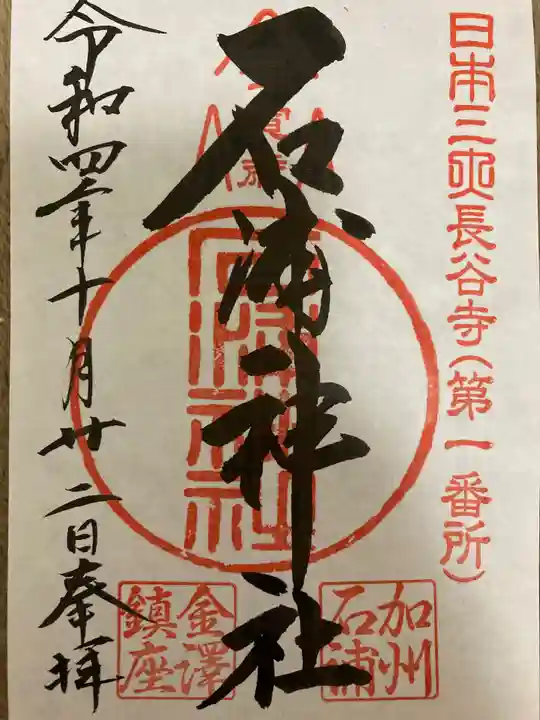 日本三大長谷寺(第一番所)
石浦神社
加州
石浦
金澤
鎮座
令和四年十月廿二日奉拝